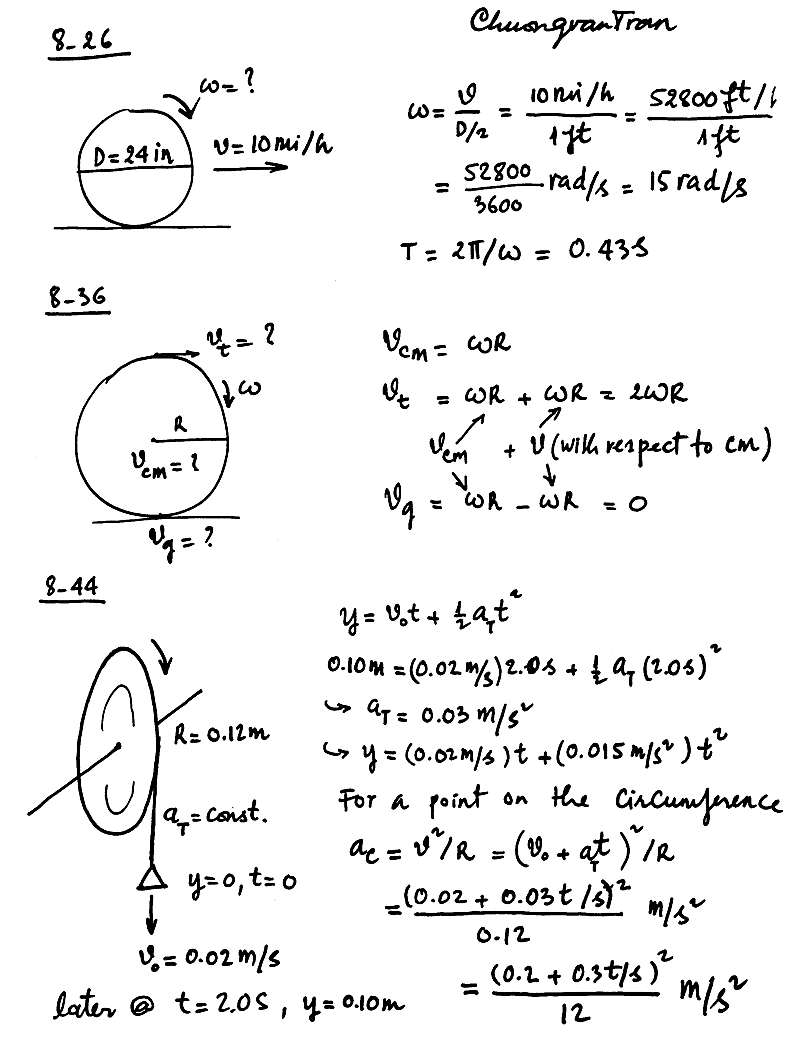 ChuongvanTran
8-26
ω = ?
D = 24 in
v = 10 mi/h
ω = v / D/2 = 10 mi/h / 1 ft = 52800 ft/ / 1 ft
= 52800 / 3600 rad/s = 15 rad/s
T = 2π/ω = 0.43 s
8-36
v_t = ?
ω
R
v_cm = ?
v_g = ?
v_cm = ωR
v_t = ωR + ωR = 2ωR
v_cm + v (with respect to cm)
v_g = ωR - ωR = 0
8-44
R = 0.12 m
a_T = const.
y = 0, t = 0
v₀ = 0.02 m/s
later @ t = 2.0 s, y = 0.10 m
y = v₀t + ½ a_T t²
0.10 m = (0.02 m/s) 2.0 s + ½ a_T (2.0 s)²
↪ a_T = 0.03 m/s²
↪ y = (0.02 m/s) t + (0.015 m/s²) t²
For a point on the circumference
a_c = v²/R = (v₀ + a_T t)²/R
= (0.02 + 0.03t /s)² / 0.12 m/s²
= (0.2 + 0.3t/s)² / 12 m/s²